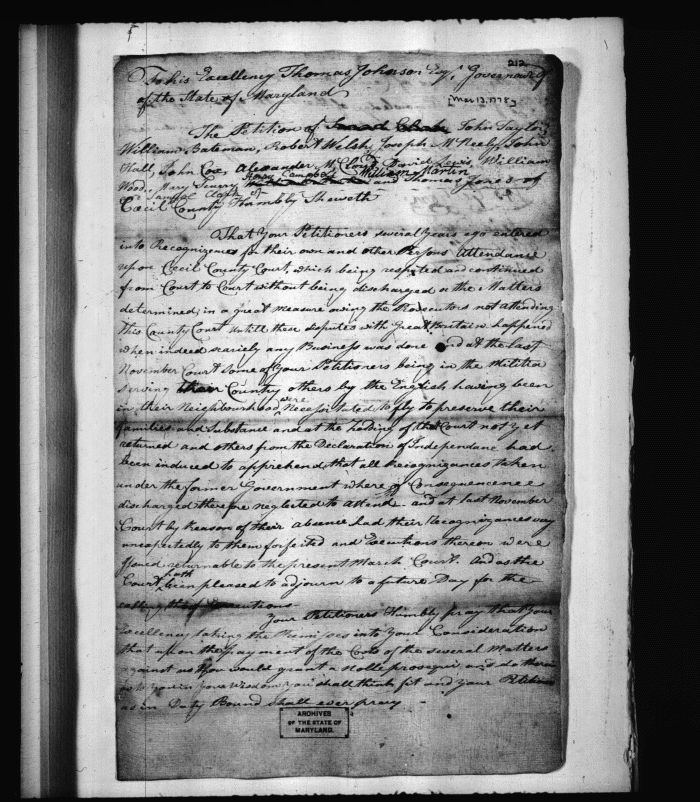 212
To his Excellency Thomas Johnson Esqr. Governour of
of the State of Maryland
[Mar 13. 1778]
The Petition of John Taylor
William Bateman, Robert Welsh, Joseph McNeely, John
Hall, John Cox, Alexander McCloy, David Lewis, William
Wood, Mary Henry Henry Campbell William Martin and Thomas Jones of
Samuel
Cecil County Humbly Sheweth
That Your Petitioners several years ago entered
into Recognizances for their own and other Persons Attendance
upon Cecil County Court, which being respited and continued
from Court to Court without being discharged or the Matters
determined, in a great measure owing the Prosecutors not attending
this County Court untill these disputes with Great Britain happened
when indeed scarcely any Business was done and at the last
November Court some of Your Petitioners being in the Militia
serving their Country others by the English having been
in their Neighbourhood were Necessitated to fly to preserve their
families and Substance and at the holding of that Court not yet
returned and others from the Declaration of Independance had
been induced to apprehend, that all Recognizances taken
under the former Government where of Consequence
discharged therefore neglected to attend and at last November
Court by Reason of their absence had their Recognizances very
unexpectedly to them forfeited and Executions thereon were
issued returnable to the present March Court. And as the
Court hath been pleased to adjourn to a future Day for the
calling the Executions
Your Petitioners Humbly pray that Your
Excellency taking the Premises into Your Consideration
that upon the payment of the Costs of the several Matters
against us You would grant a Nolle prosequi and do therein
as to you in Your Wisdom you shall think fit and Your Petitioners
as in Duty Bound shall ever pray
ARCHIVES
OF THE STATE OF
MARYLAND.